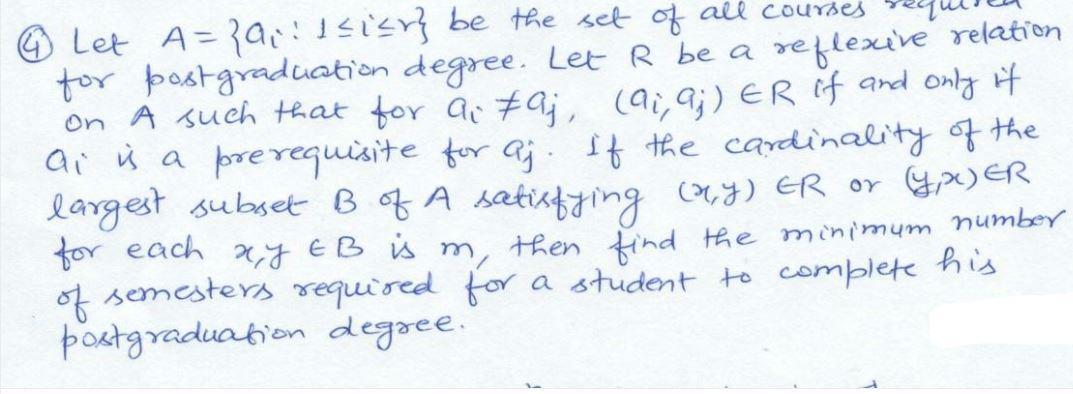 ④ Let A = {aᵢ : 1≤i≤r} be the set of all courses required
for postgraduation degree. Let R be a reflexive relation
on A such that for aᵢ ≠ aⱼ, (aᵢ, aⱼ) ∈ R if and only if
aᵢ is a prerequisite for aⱼ. If the cardinality of the
largest subset B of A satisfying (x,y) ∈R or (y,x)∈R
for each x,y ∈ B is m, then find the minimum number
of semesters required for a student to complete his
postgraduation degree.